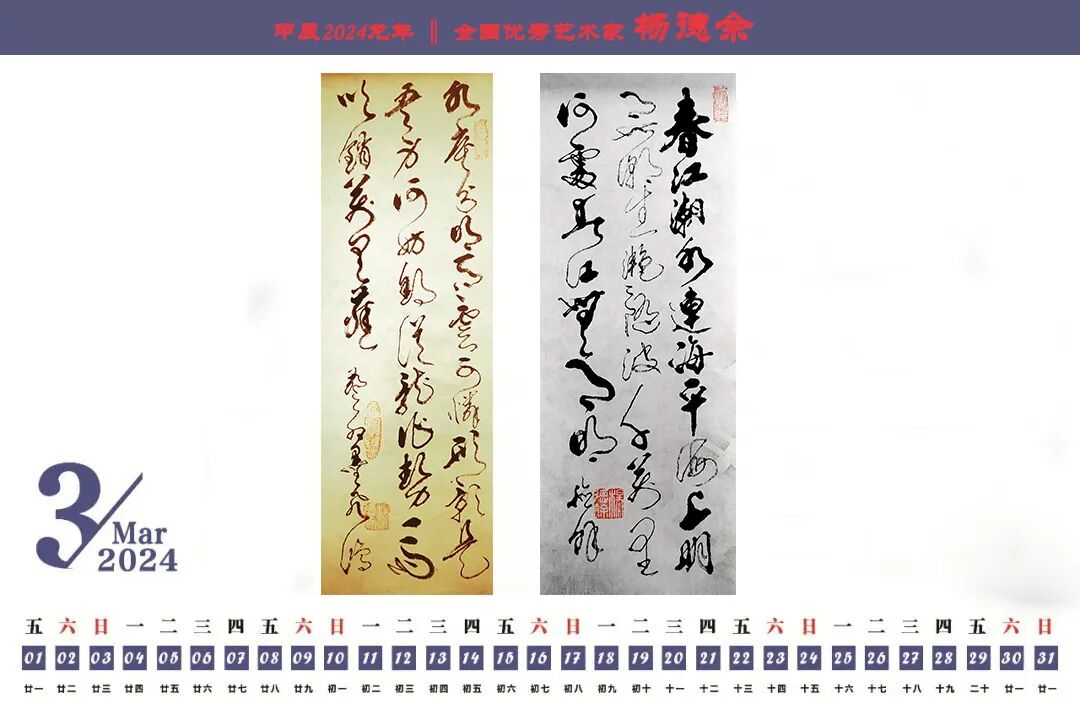 甲辰2024龙年 ‖ 全国优秀艺术家 杨德余
春江潮水連海平海上明
月共潮生灩灩隨波千萬里
何處春江無月明 德餘
水底分明天上雲可憐形影
吾身何妨
吹銷萬里
3
Mar
2024
五 六 日 一 二 三 四 五 六 日 一 二 三 四 五 六 日 一 二 三 四 五 六 日 一 二 三 四 五 六 日
01 02 03 04 05 06 07 08 09 10 11 12 13 14 15 16 17 18 19 20 21 22 23 24 25 26 27 28 29 30 31
廿一 廿二 廿三 廿四 廿五 廿六 廿七 廿八 廿九 初一 初二 初三 初四 初五 初六 初七 初八 初九 初十 十一 十二 十三 十四 十五 十六 十七 十八 十九 二十 廿一 廿一